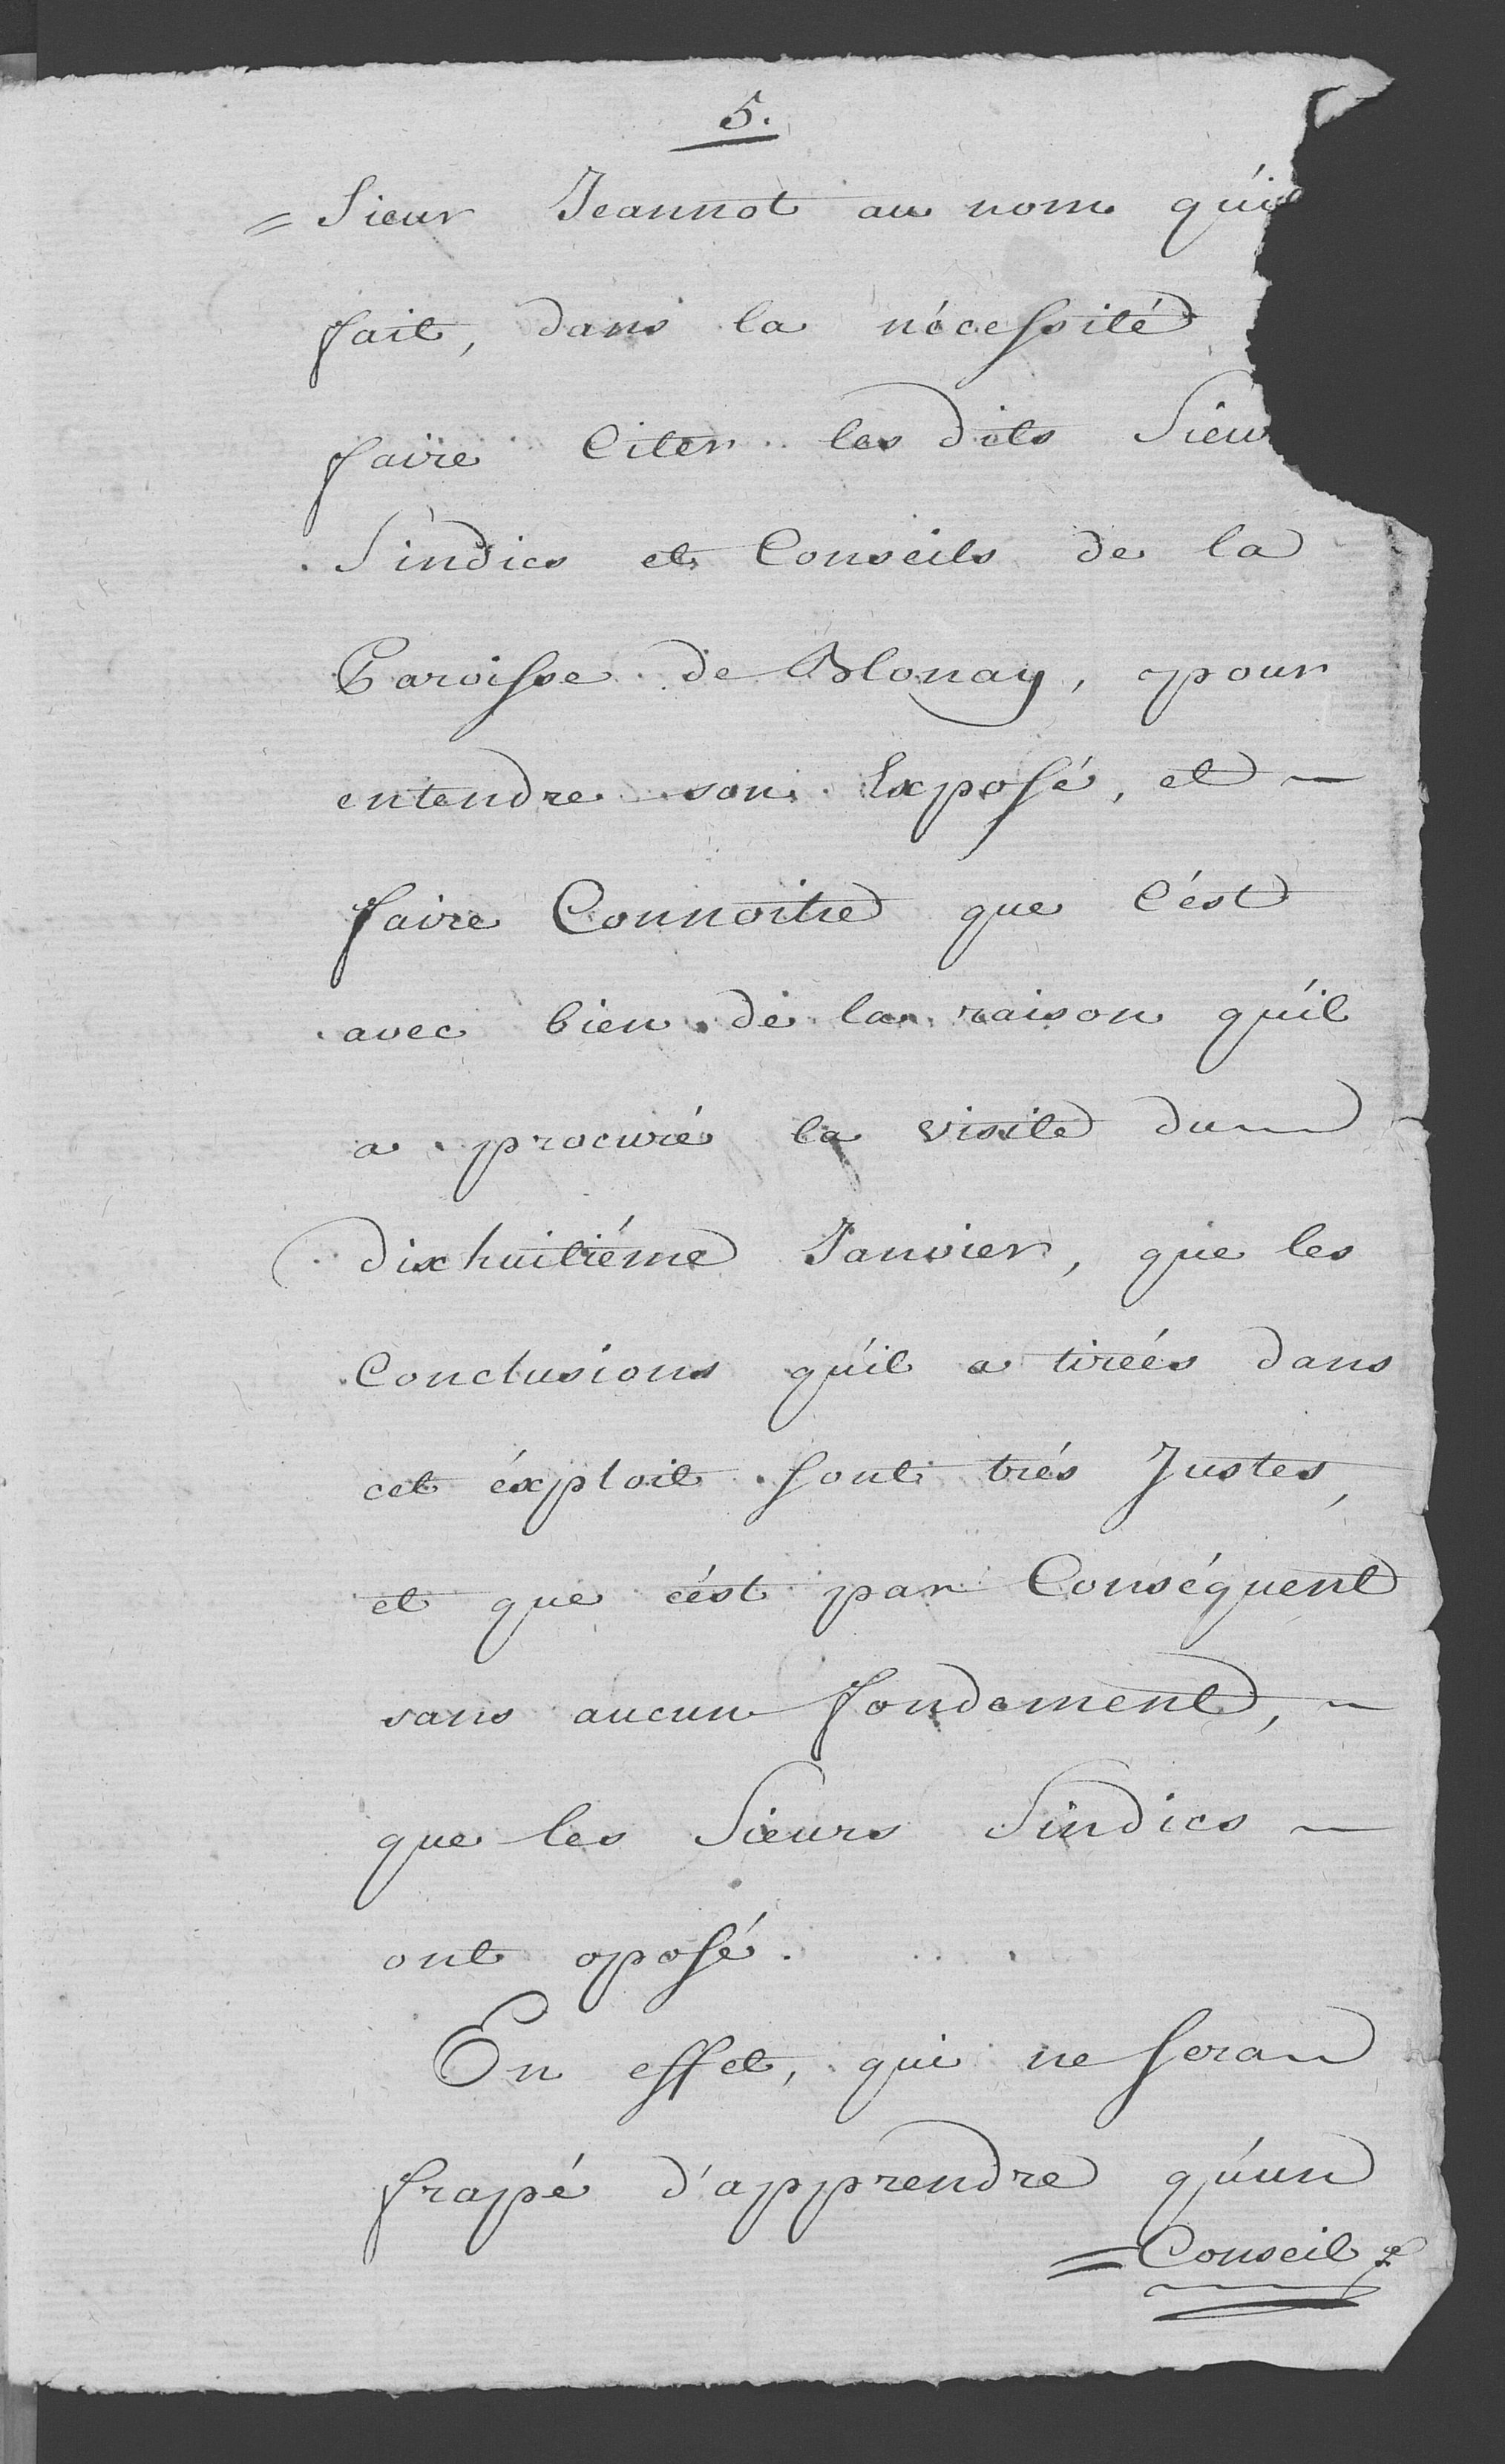 5.
= Sieur Jeannot au nom qu'il
fait, dans la nécessité
faire Citer les dits Sieur
Sindics et Conseils de la
Paroisse de Blonay, pour
entendre son Exposé, et —
faire Connoitre que c'ést
avec bien de la raison qu'il
a procuré la visite du
dixhuitiéme Janvier, que les
Conclusions qu'il a tireés dans
cet éxploit sont trés Justes,
et que c'ést par Conséquent
sans aucun fondement, —
que les Sieurs Sindics —
ont oposé.
En effet, qui ne sera
frapé d'apprendre qu'un
= Conseil